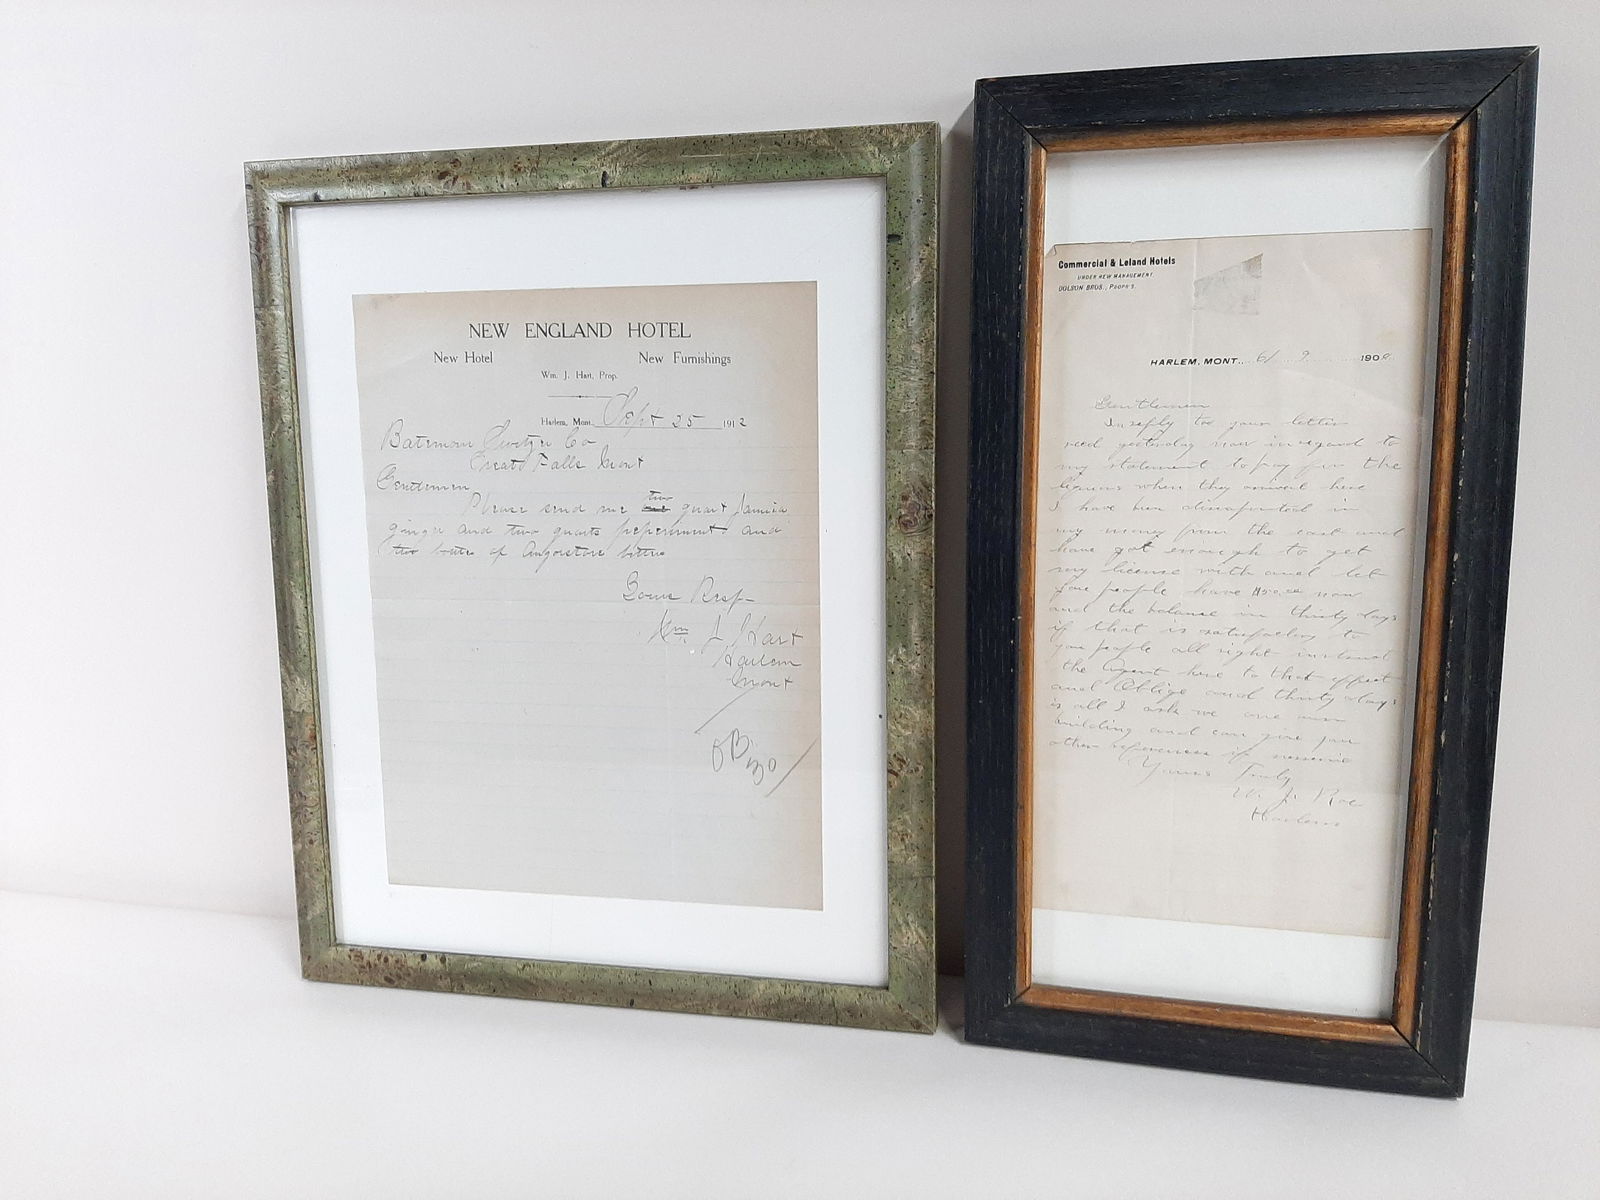 NEW ENGLAND HOTEL
New Hotel New Furnishings
Wm. J. Hart, Prop.
Harlem, Mont. Sept 25 1912
Bateman Switzer Co
Great Falls Mont
Gentlemen
Please send me two quart Jamica
ginger and two quarts peperment and
two of Angosture bitters
Yours Resp-
Wm J Hart
Harlem
Mont
Commercial & Leland Hotels
UNDER NEW MANAGEMENT.
DOLSON BROS., PROPR'S.
HARLEM, MONT. 6/ 9 190
Gentlemen
In reply to your letter
recd yesterday now in regard to
my statement to pay for the
liquors when they arrived here
I have been disapointed in
my money from the east and
have got enough to get
my license with and let
you people have now
and the balance in thirty days
if that is satisfactory to
you people all right instruct
the Agent here to that effect
and Oblige and thirty days
is all I ask we own
building and can give you
other references if
Yours Truly
W. J. Roe
Harlem